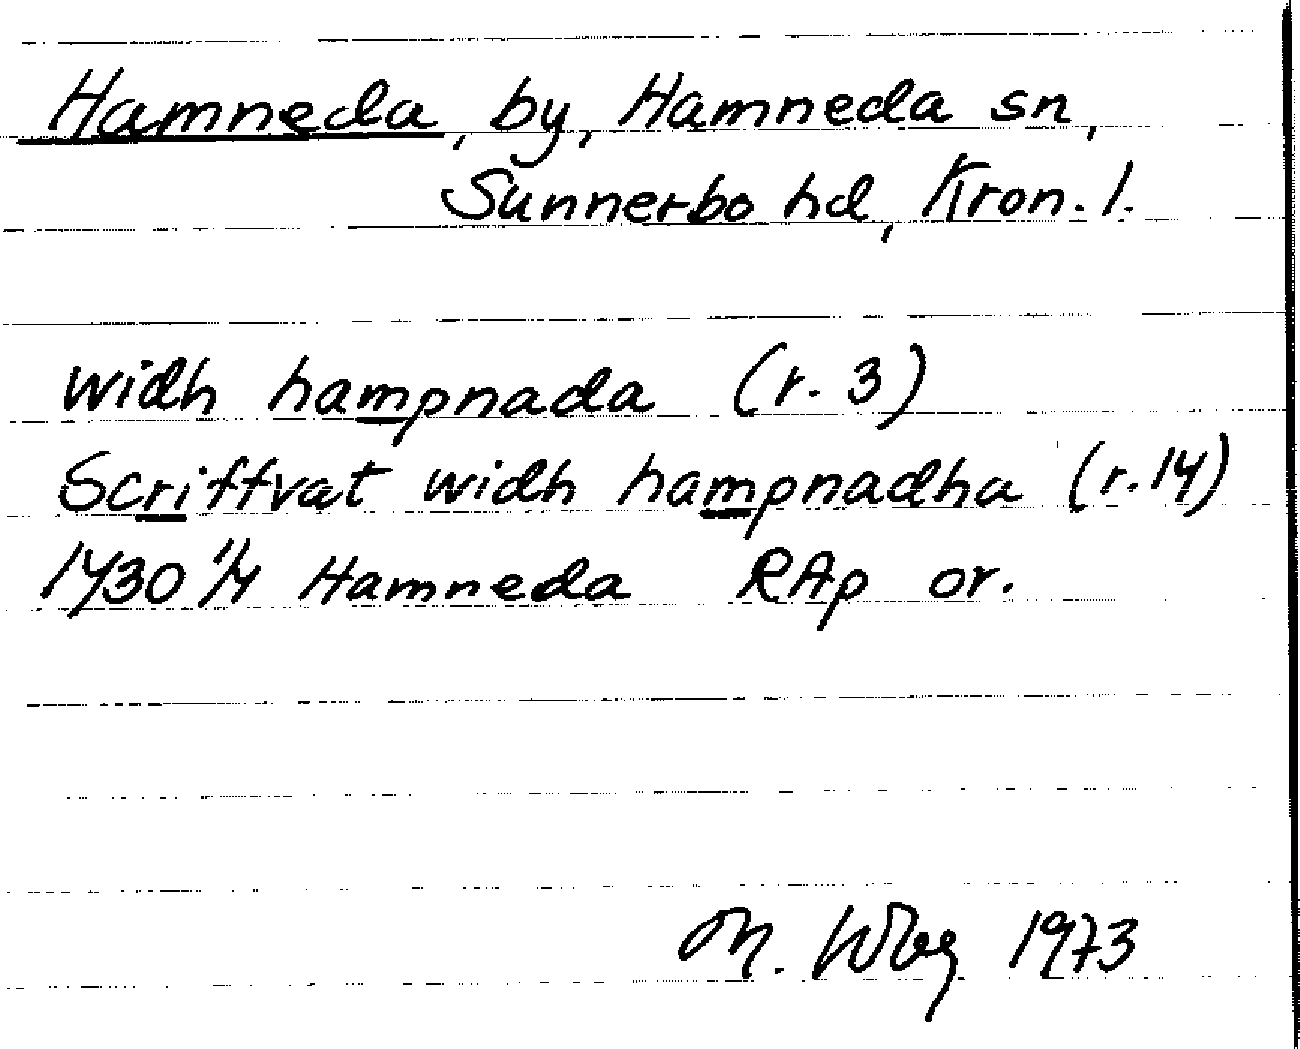 Hamneda, by, Hamneda sn,
Sunnerbo hd, Kron. l.
widh hampnada (r. 3)
Scriffvat widh hampnadha (r. 14)
1430 1/4 Hamneda RAp or.
M. Wbg 1973